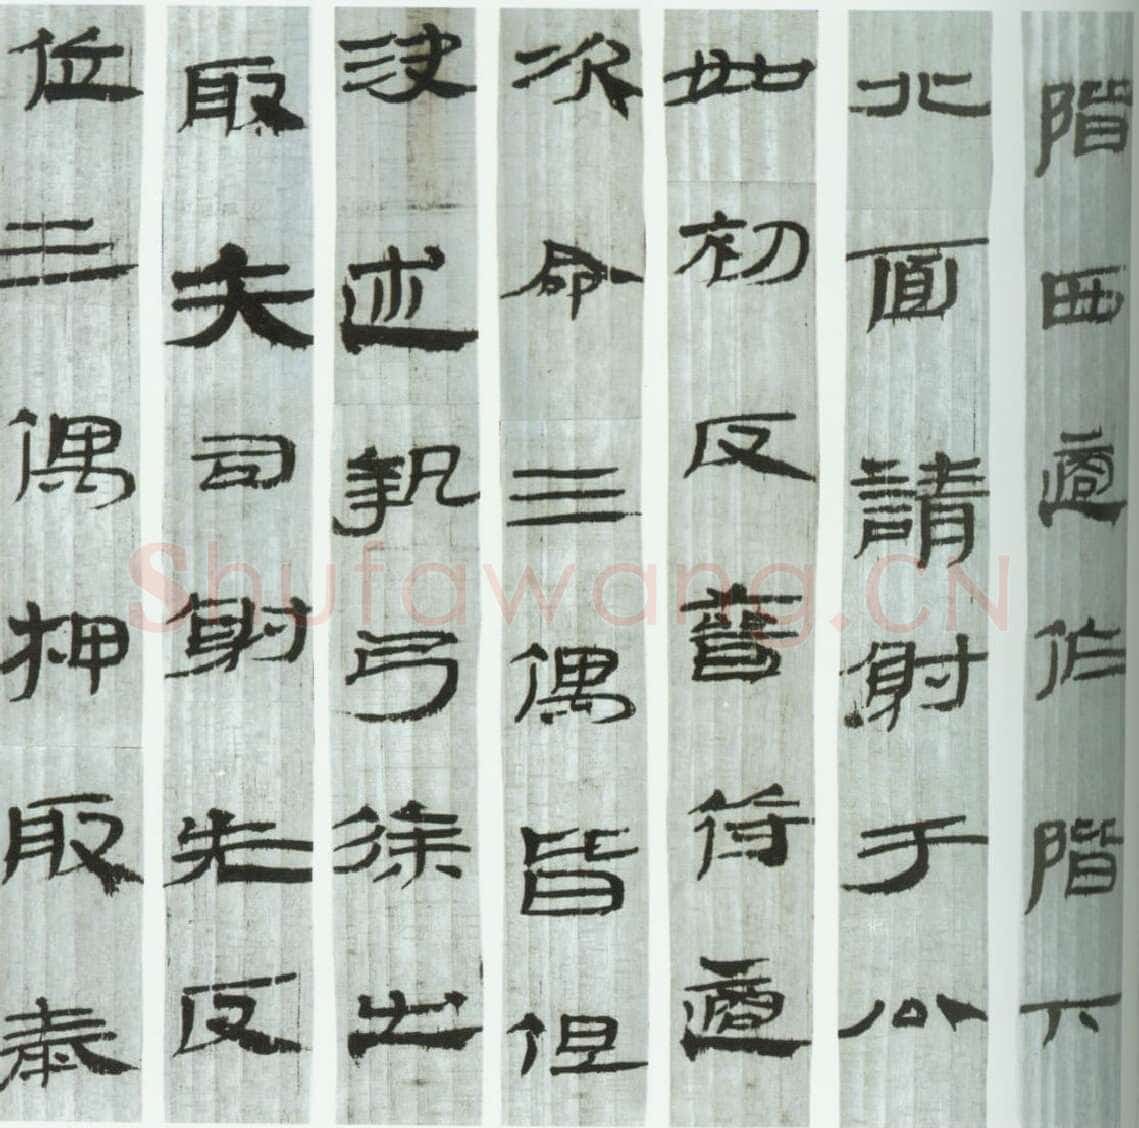 階西適作階下
北面請射于公
如初反晉適
次命三偶皆但
決述執弓徐出
取矢司射先反
位三偶押取
Shufawang.CN